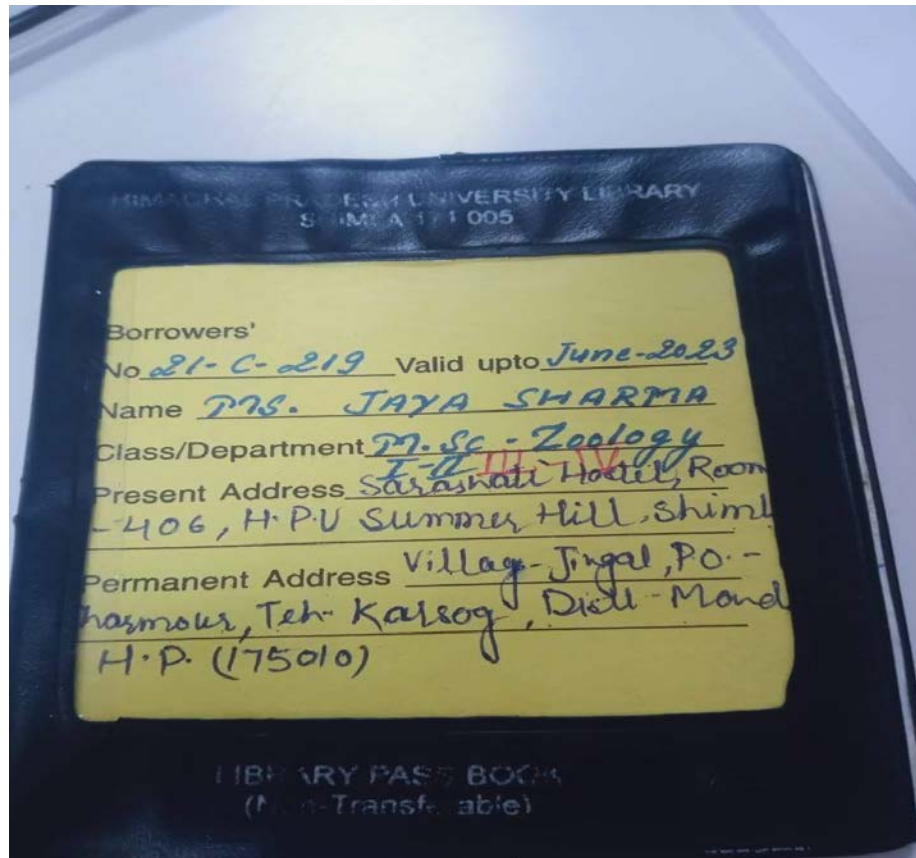 HIMACHAL PRADESH UNIVERSITY LIBRARY
SHIMLA 171 005
Borrowers'
No 21-C-219 Valid upto June-2023
Name MS. JAYA SHARMA
Class/Department M.Sc - Zoology
I-II III - IV
Present Address Sarashati Hostel, Room
-406, H.P.U Summer Hill, Shiml
Permanent Address Village-Jingal, P.O.-
harmour, Teh- Karsog, Distt-Mand
H.P. (175010)
LIBRARY PASS BOOK
(Non-Transferable)